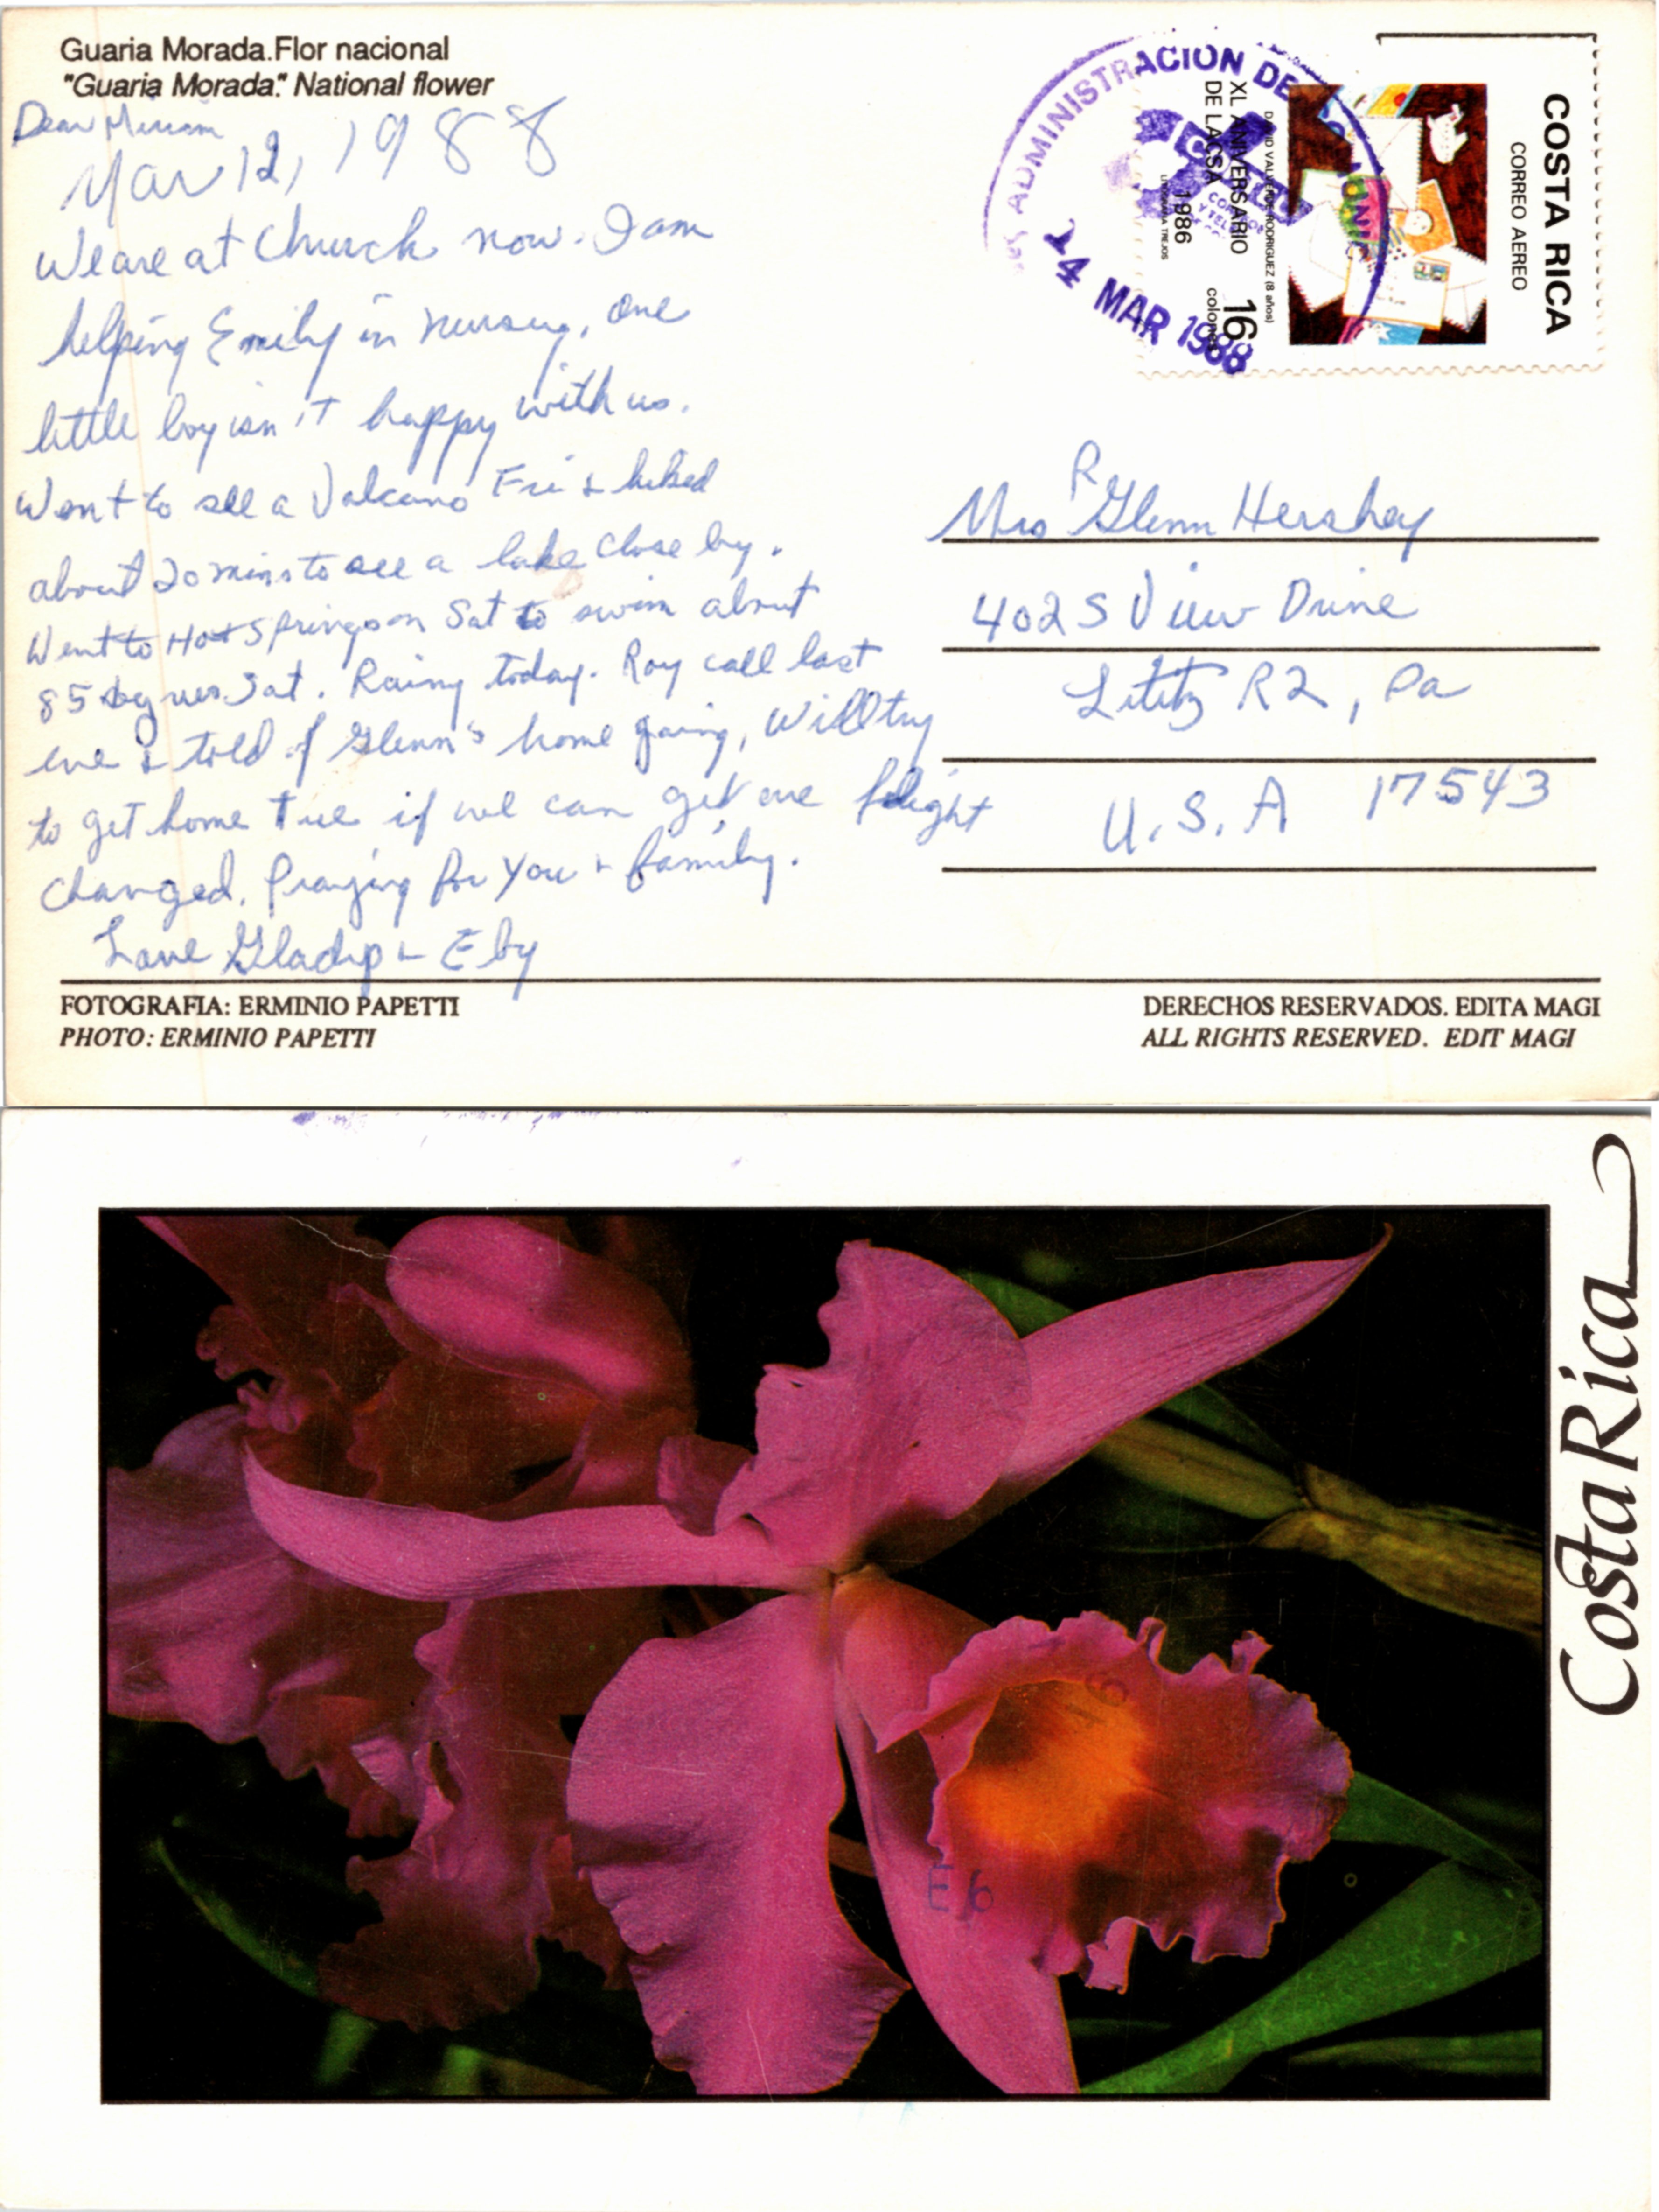 Guaria Morada.Flor nacional
"Guaria Morada." National flower
Dear Miriam
Mar 12, 1988
We are at Church now. I am
helping Emily in nursery, one
little boy isn't happy with us.
Went to see a Valcano Fri & hiked
about 20 mins to see a lake close by.
Went to Hot Springs on Sat to swim about
85 degrees Sat. Rainy today. Roy call last
eve & told of Glenn's home going, Will try
to get home Tue if we can get our flight
changed. Praying for You & family.
Love Gladys & Eby
FOTOGRAFIA: ERMINIO PAPETTI
PHOTO: ERMINIO PAPETTI
ADMINISTRACION DE
14 MAR 1988
COSTA RICA
CORREO AEREO
DAVID VALVERDE RODRIGUEZ (8 años)
16
colones
XL ANIVERSARIO
DE LACSA
1986
LITOGRAFIA TREJOS
Mrs R Glenn Hershey
402 S View Drive
Lititz R2, Pa
U.S.A 17543
DERECHOS RESERVADOS. EDITA MAGI
ALL RIGHTS RESERVED. EDIT MAGI
Costa Rica
16
E6